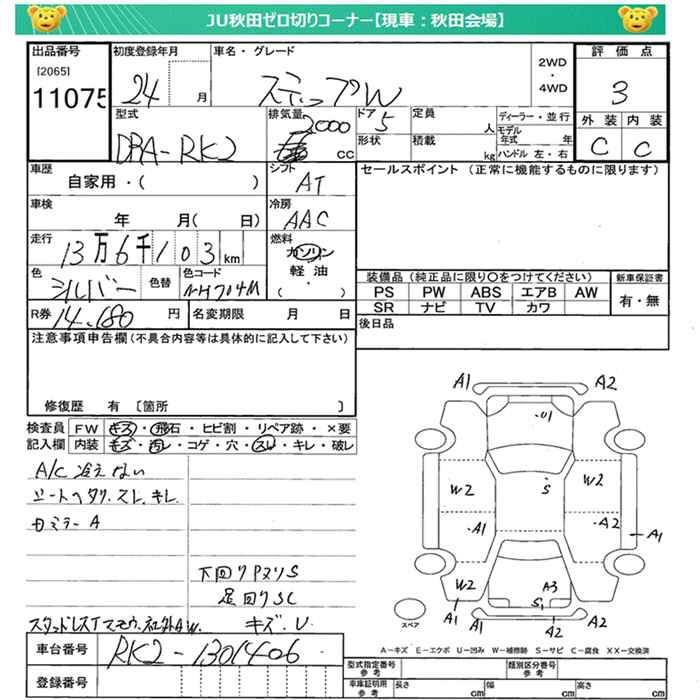 JU秋田ゼロ切りコーナー【現車：秋田会場】
出品番号 初度登録年月 車名・グレード 評価点
[2065]
11075 24 月 ステップW 2WD・4WD 3
型式 排気量 ドア 定員 ディーラー・並行 外装 内装
DBA-RK2 2000 CC 5 人 モデル年式 年 C C
形状 積載 kg ハンドル 左・右
車歴 シフト セールスポイント（正常に機能するものに限ります）
自家用・( ) AT
車検 冷房
年 月( 日) AAC
走行 燃料
13万6千103km ガソリン
軽油
・
( )
色 色替 色コード 装備品（純正品に限り○をつけてください） 新車保証書
シルバー NH704M PS PW ABS エアB AW 有・無
SR ナビ TV カワ
R券 14,180円 名変期限 月 日 後日品
注意事項申告欄（不具合内容等は具体的に記入して下さい）
修復歴 有 〔箇所 〕
検査員 FW キズ・飛石・ヒビ割・リペア跡・×要
記入欄 内装 キズ・汚レ・コゲ・穴・スレ・キレ・破レ
A/C冷えない
シートヘタリ.スレ.キレ.
ミラーA
下回りPヌリS
足回りSC
スタッドレスイマモウ.社外AW. キズ.U
車台番号 RK2-1301406
登録番号
A1 A2
U1
W2 S W2
A1 A2 A1
W2 A3
A1 S1 A2
A1 A2
スペア
A-キズ E-エクボ U-凹み W-補修跡 S-サビ C-腐食 XX-交換済
型式指定番号 参考 類別区分番号 参考
車庫証明用 参考 長さ cm 幅 cm 高さ cm